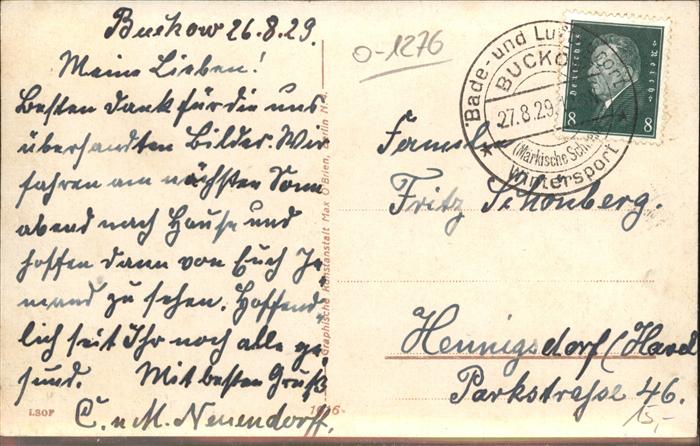 Buckow 26.8.29.
Meine Lieben!
Besten Dank für die uns
übersandten Bilder. Wir
fahren am nächsten Sonn
abend nach Hause und
hoffen dann von Euch Je-
mand zu sehen. Hoffend-
lich seit Ihr noch alle ge
sund. Mit besten Gruß
C. u M. Neuendorff.
O-1276
Bade- und Luftkurort
BUCKOW
27.8.29
(Märkische Schweiz)
Wintersport
Deutsches Reich
8 8
Familie
Fritz Schönberg.
Hennigsdorf (Havel
Parkstraße 46.
15,-
Graphische Kunstanstalt Max O'Brien, Berlin
LSOF